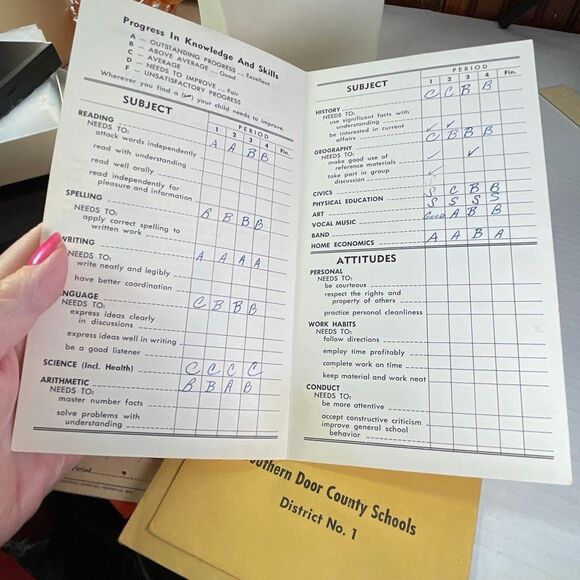 Progress In Knowledge And Skills
A — OUTSTANDING PROGRESS — Excellent
B — ABOVE AVERAGE — Good
C — AVERAGE
D — NEEDS TO IMPROVE — Fair
F — UNSATISFACTORY PROGRESS
Wherever you find a (✓) your child needs to improve.
SUBJECT PERIOD
1 2 3 4 Fin.
READING A A B B
NEEDS TO:
attack words independently
read with understanding
read well orally
read independently for
pleasure and information
SPELLING B B B B
NEEDS TO:
apply correct spelling to
written work
WRITING A A A A
NEEDS TO:
write neatly and legibly
have better coordination
LANGUAGE C B B B
NEEDS TO:
express ideas clearly
in discussions
express ideas well in writing
be a good listener
SCIENCE (Incl. Health) C C C C
ARITHMETIC B B A B
NEEDS TO:
master number facts
solve problems with
understanding
SUBJECT PERIOD
1 2 3 4 Fin.
HISTORY C C B B
NEEDS TO:
use significant facts with
understanding
be interested in current
affairs ✓ ✓
GEOGRAPHY C B B B
NEEDS TO:
make good use of
reference materials ✓ ✓
take part in group
discussion ✓
CIVICS
PHYSICAL EDUCATION S C B B
ART S S S S
VOCAL MUSIC Good A B B
BAND
HOME ECONOMICS A A B A
ATTITUDES
PERSONAL
NEEDS TO:
be courteous
respect the rights and
property of others
practice personal cleanliness
WORK HABITS
NEEDS TO:
follow directions
employ time profitably
complete work on time
keep material and work neat
CONDUCT
NEEDS TO:
be more attentive
accept constructive criticism
improve general school
behavior
Southern Door County Schools
District No. 1